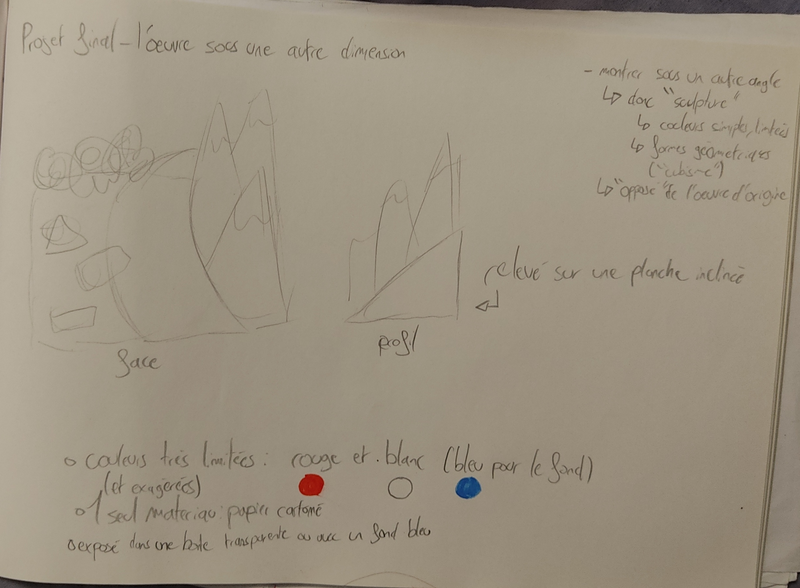 Projet final - l'oeuvre sous une autre dimension
- montrer sous un autre angle
↳ donc "sculpture"
↳ couleurs simples, limitées
↳ formes géométriques
("cubisme")
↳ "opposé" de l'oeuvre d'origine
relevé sur une planche incliné
face
profil
o couleurs très limitées : rouge et blanc (bleu pour le fond)
(et exagérées)
o 1 seul materiau : papier cartonné
o exposé dans une boite transparente ou avec un fond bleu